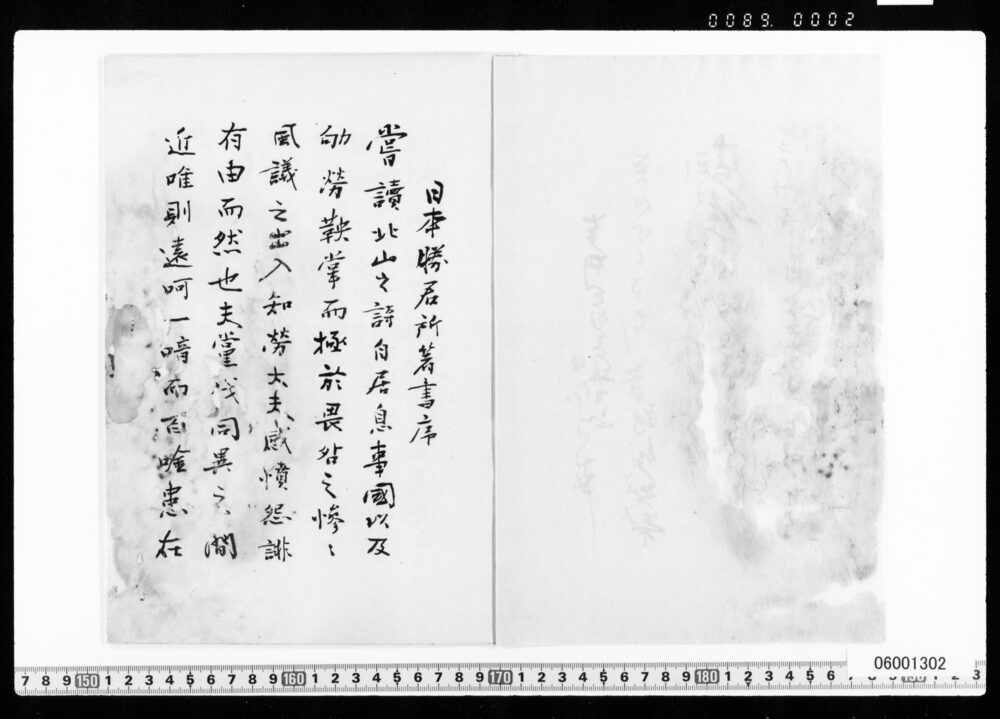 0089. 0002
日本勝君所著書序
嘗讀北山之詩自居息事國以及
劬勞鞅掌而極於畏咎之慘〻
風議之出入知勞大夫感憤怨誹
有由而然也夫黨伐同異之間
近唯則遠呵一喑而百唫患在
7 8 9 150 1 2 3 4 5 6 7 8 9 160 1 2 3 4 5 6 7 8 9 170 1 2 3 4 5 6 7 8 9 180 1 2 3 4 5 6
06001302